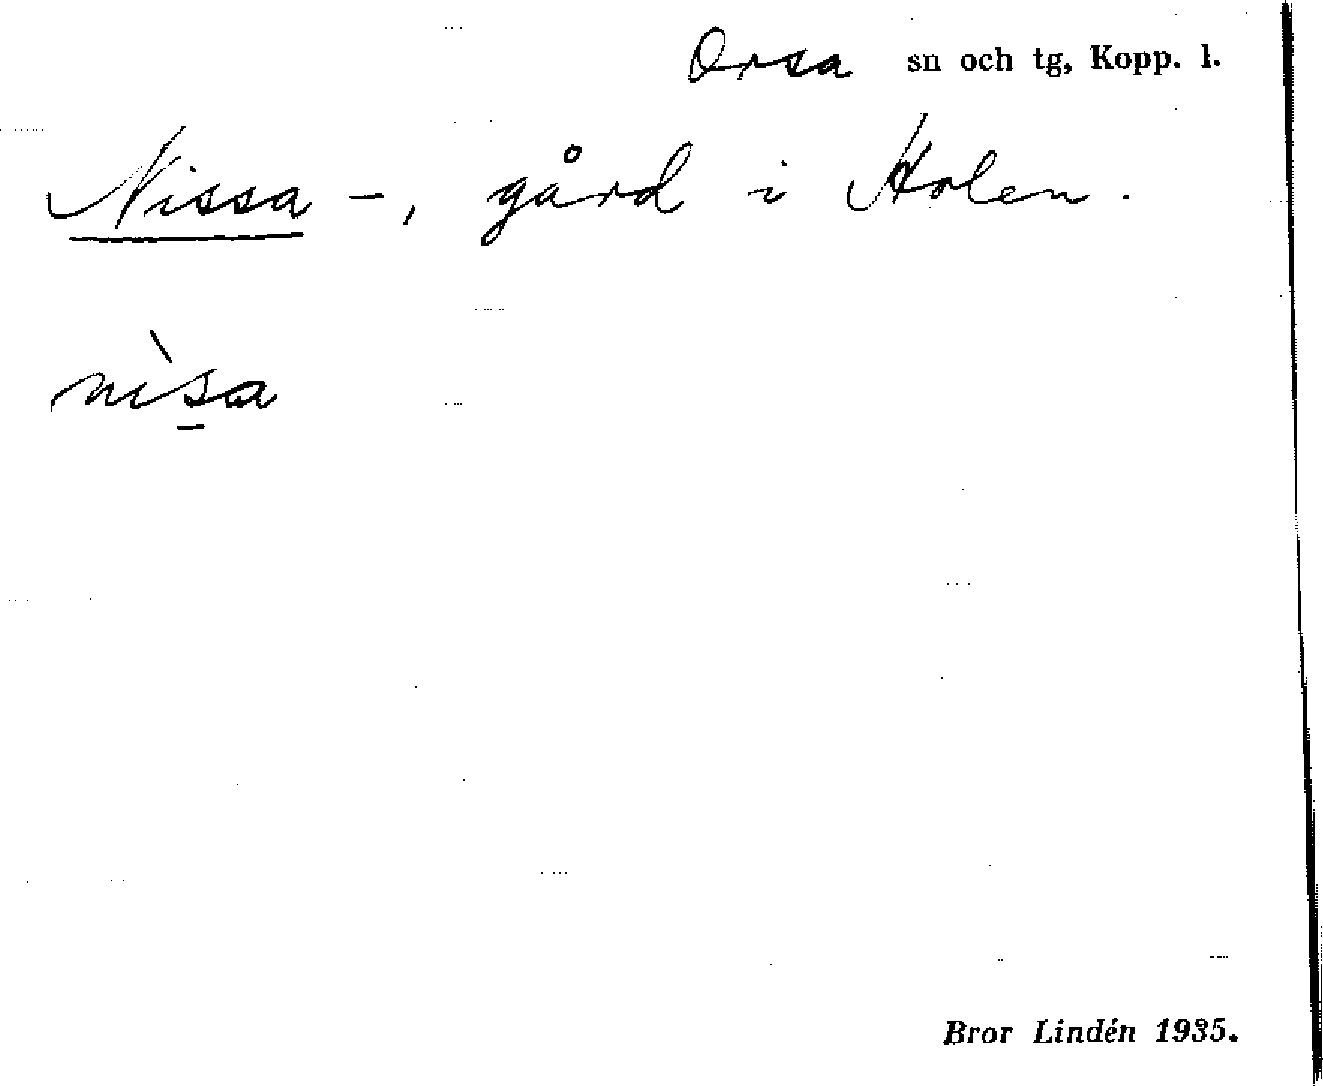 Orsa sn och tg, Kopp. l.
Nissa -, gård i Holen.
nìsa
Bror Lindén 1935.